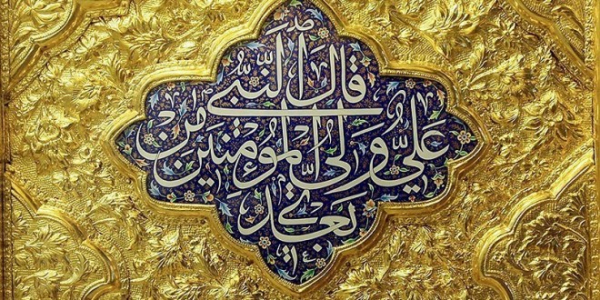 قالَ النَّبيُّ ص
عَليٌّ وَلیُّ المُؤمِنینَ مِن
بَعدی
١٤